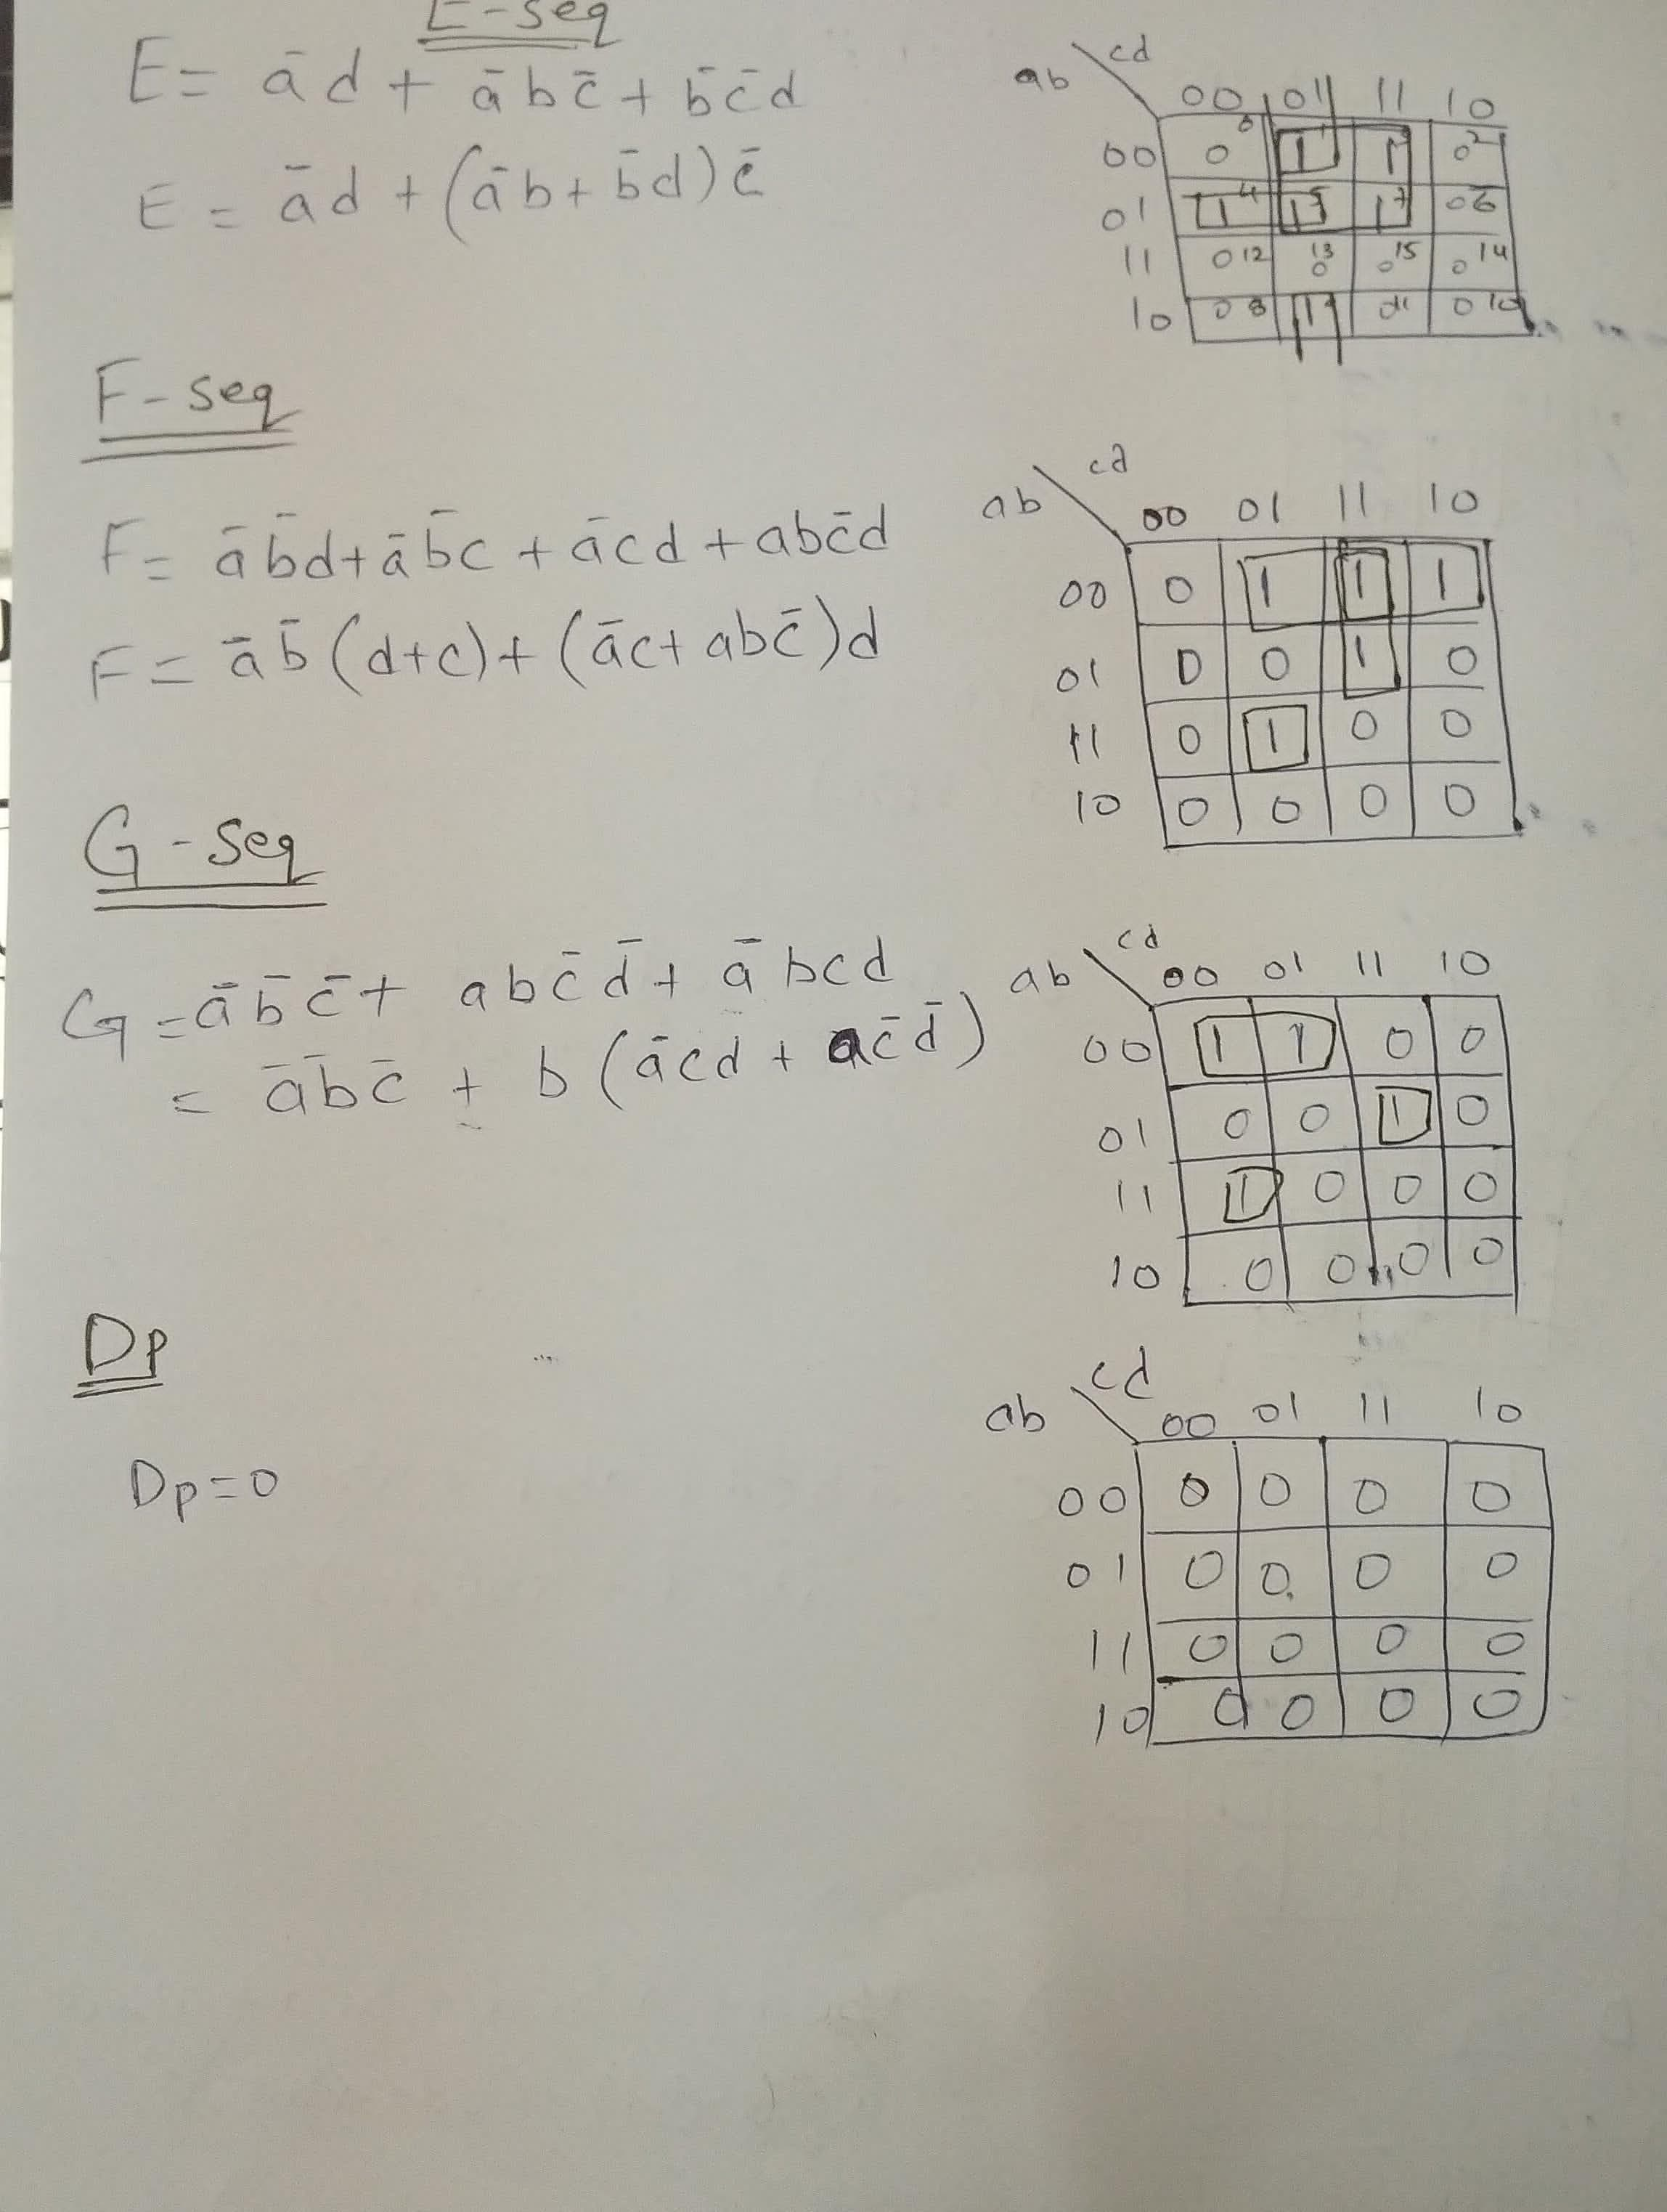 E-seg
E = a̅d + a̅bc̅ + b̅c̅d
E = a̅d + (a̅b + b̅d)c̅
cd
ab
00 01 11 10
00 0 0 1 1 1 0 2
01 1 4 1 5 1 7 0 6
11 0 12 13 0 0 15 0 14
10 0 8 1 9 0 11 0 10
F-seg
F = a̅b̅d + a̅b̅c + a̅cd + abc̅d
F = a̅b̅(d+c) + (a̅c + abc̅)d
cd
ab
00 01 11 10
00 0 1 1 1
01 0 0 1 0
11 0 1 0 0
10 0 0 0 0
G-seg
G = a̅b̅c̅ + abc̅d̅ + a̅bcd
= a̅b̅c̅ + b(a̅cd + ac̅d̅)
cd
ab
00 01 11 10
00 1 1 0 0
01 0 0 1 0
11 1 0 0 0
10 0 0 0 0
Dp
Dp=0
cd
ab
00 01 11 10
00 0 0 0 0
01 0 0 0 0
11 0 0 0 0
10 0 0 0 0